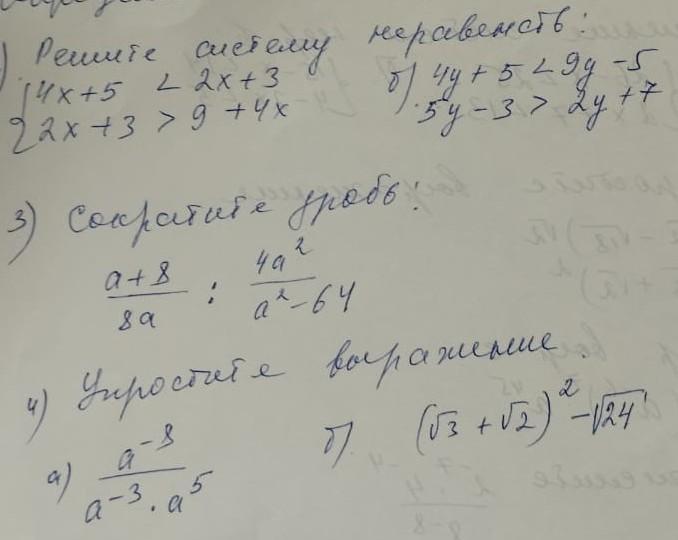 ) Решите систему неравенств:
{4x+5 < 2x+3
2x+3 > 9+4x
б) 4y+5 < 9y-5
5y-3 > 2y+7
3) Сократите дробь:
a+8 / 8a : 4a² / a²-64
4) Упростите выражение.
а) a⁻⁸ / a⁻³ · a⁵
б) (√3 + √2)² - √24